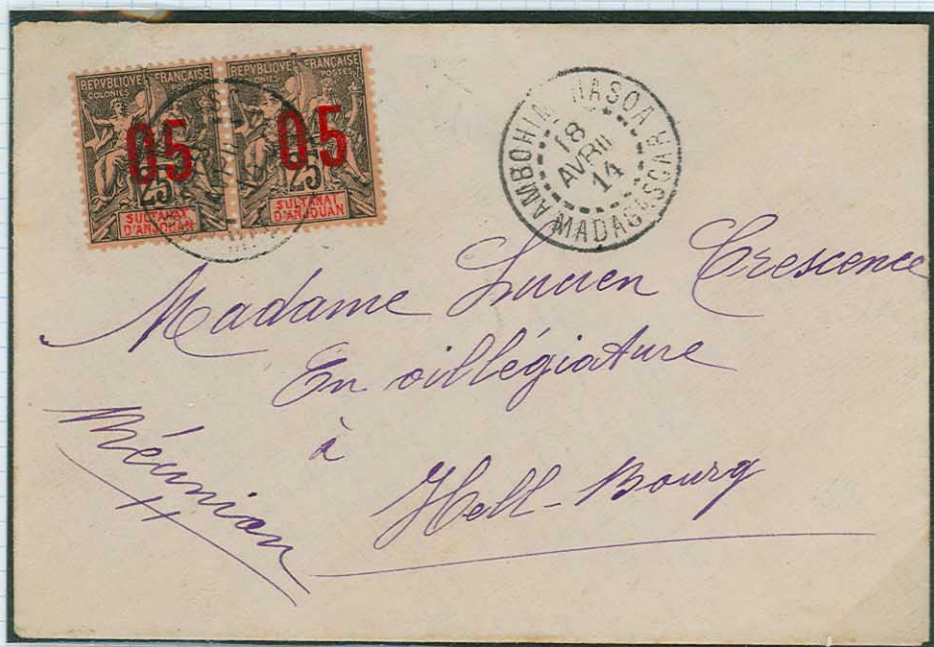 REPVBLIQVE FRANÇAISE
COLONIES POSTES
05
25
SULTANAT
D'ANJOUAN
REPVBLIQVE FRANÇAISE
COLONIES POSTES
05
25
SULTANAT
D'ANJOUAN
AMBOHIMANASOA
18
AVRIL
14
MADAGASCAR
Madame Lucien Crescence
En villégiature
à
Hell-Bourg
Réunion